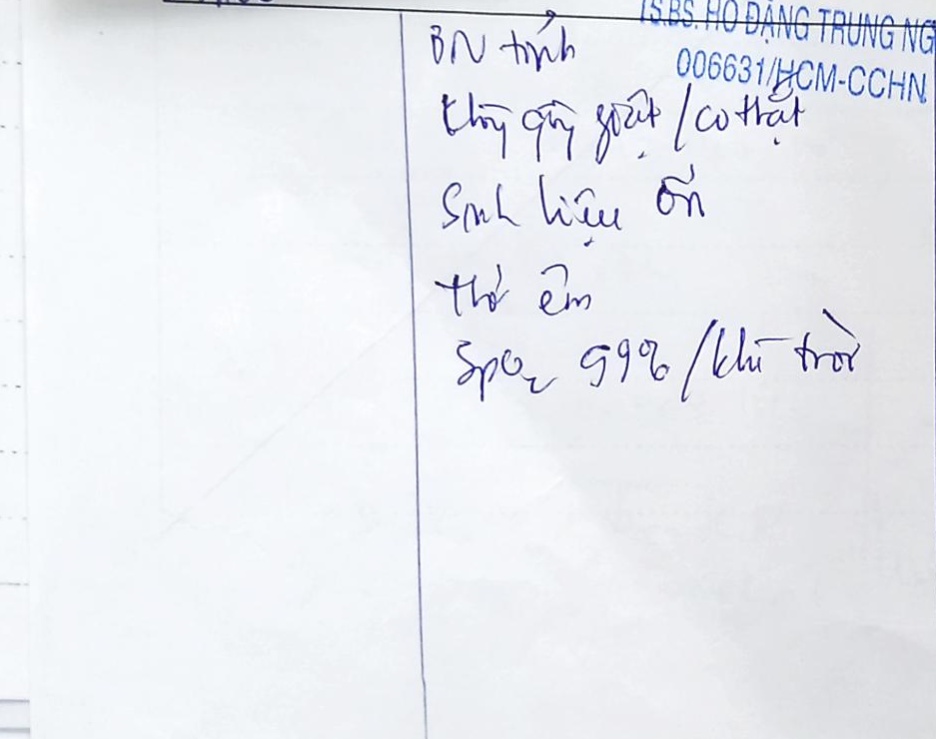 TS.BS. HỒ ĐẶNG TRUNG NG
006631/HCM-CCHN
BN tỉnh
không giật / co thắt
Sinh hiệu ổn
thở êm
SpO₂ 99% / khí trời